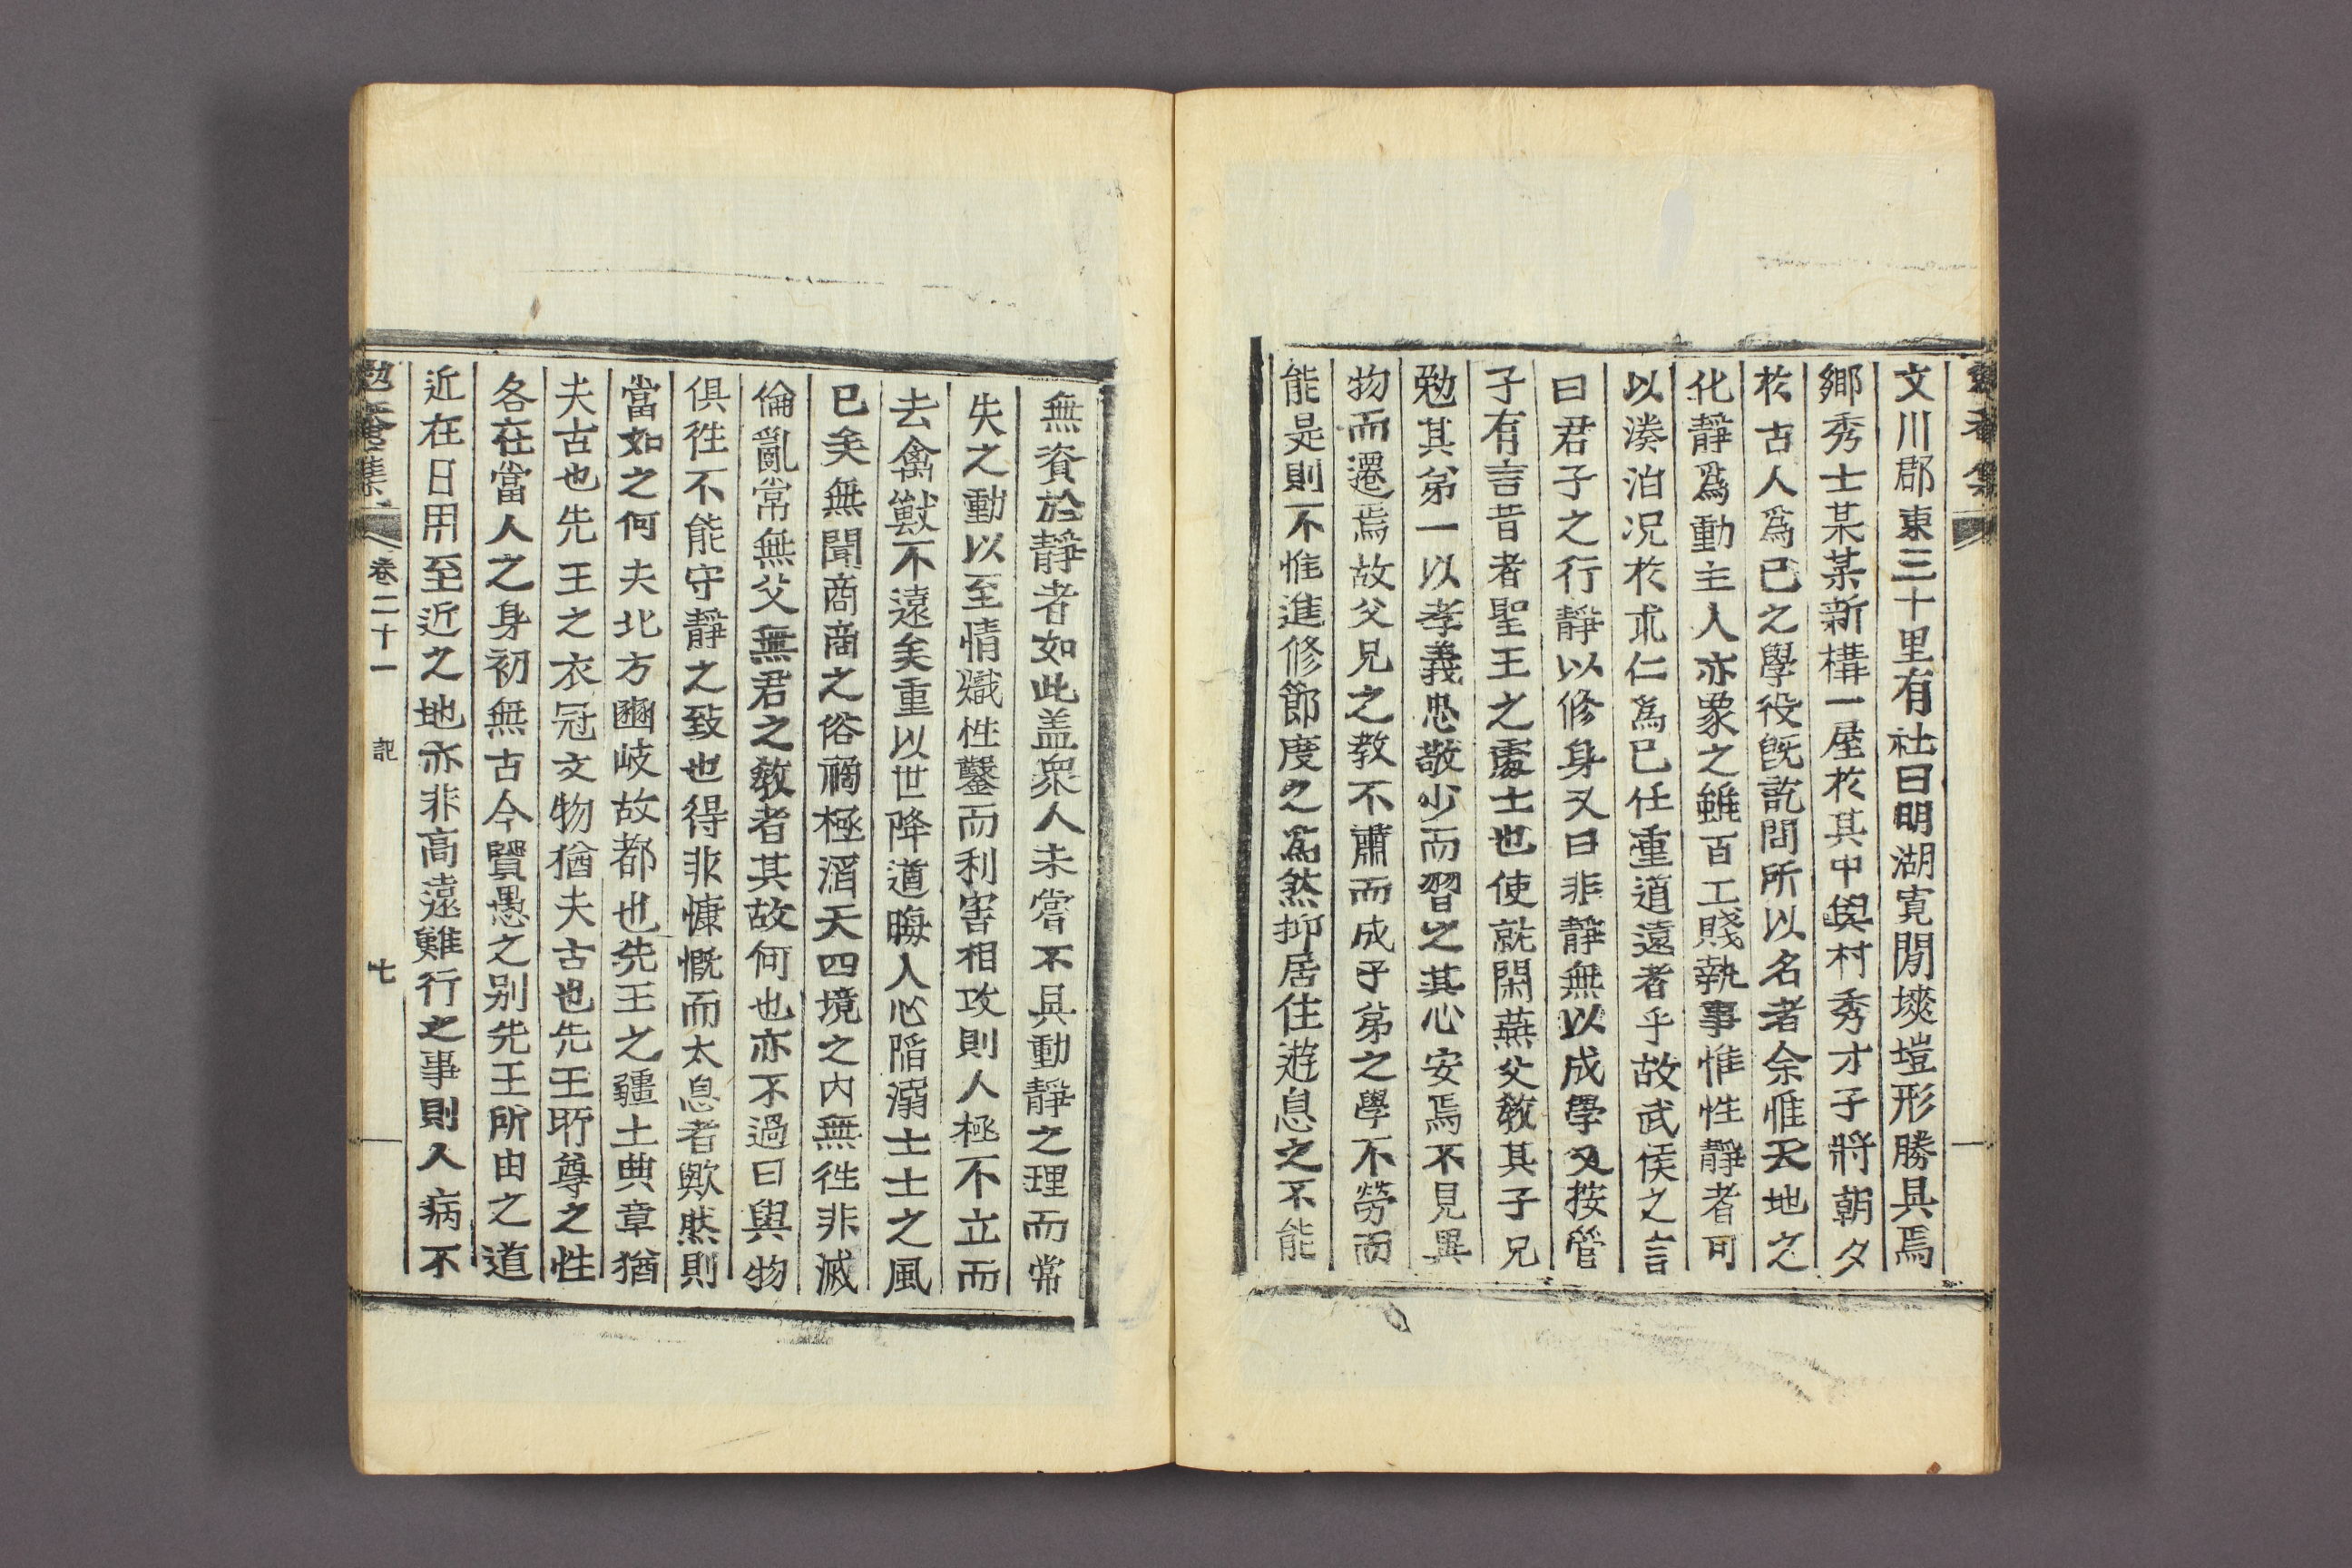 文川郡東三十里有社曰明湖寛閒塽塏形勝具焉
鄕秀士某某新構一屋於其中與村秀才子將朝夕
於古人爲己之學役旣訖問所以名者余惟天地之
化靜爲動主人亦象之雖百工賤執事惟性靜者可
以湊泊况於求仁爲己任重道遠者乎故武侯之言
曰君子之行靜以修身又曰非靜無以成學又按管
子有言昔者聖王之處士也使就閑燕父敎其子兄
勉其弟一以孝義忠敬少而習之其心安焉不見異
物而遷焉故父兄之敎不肅而成子弟之學不勞而
能是則不惟進修節度之爲然抑居住遊息之不能
無資於靜者如此盖衆人未嘗不具動靜之理而常
失之動以至情熾性鑿而利害相攻則人極不立而
去禽獸不遠矣重以世降道晦人心陷溺士士之風
已矣無聞商商之俗禍極滔天四境之內無徃非滅
倫亂常無父無君之敎者其故何也亦不過曰與物
俱徃不能守靜之致也得非慷慨而太息者歟然則
當如之何夫北方豳岐故都也先王之疆土典章猶
夫古也先王之衣冠文物猶夫古也先王所尊之性
各在當人之身初無古今賢愚之别先王所由之道
近在日用至近之地亦非高遠難行之事則人病不
勉菴集 卷二十一 記 七